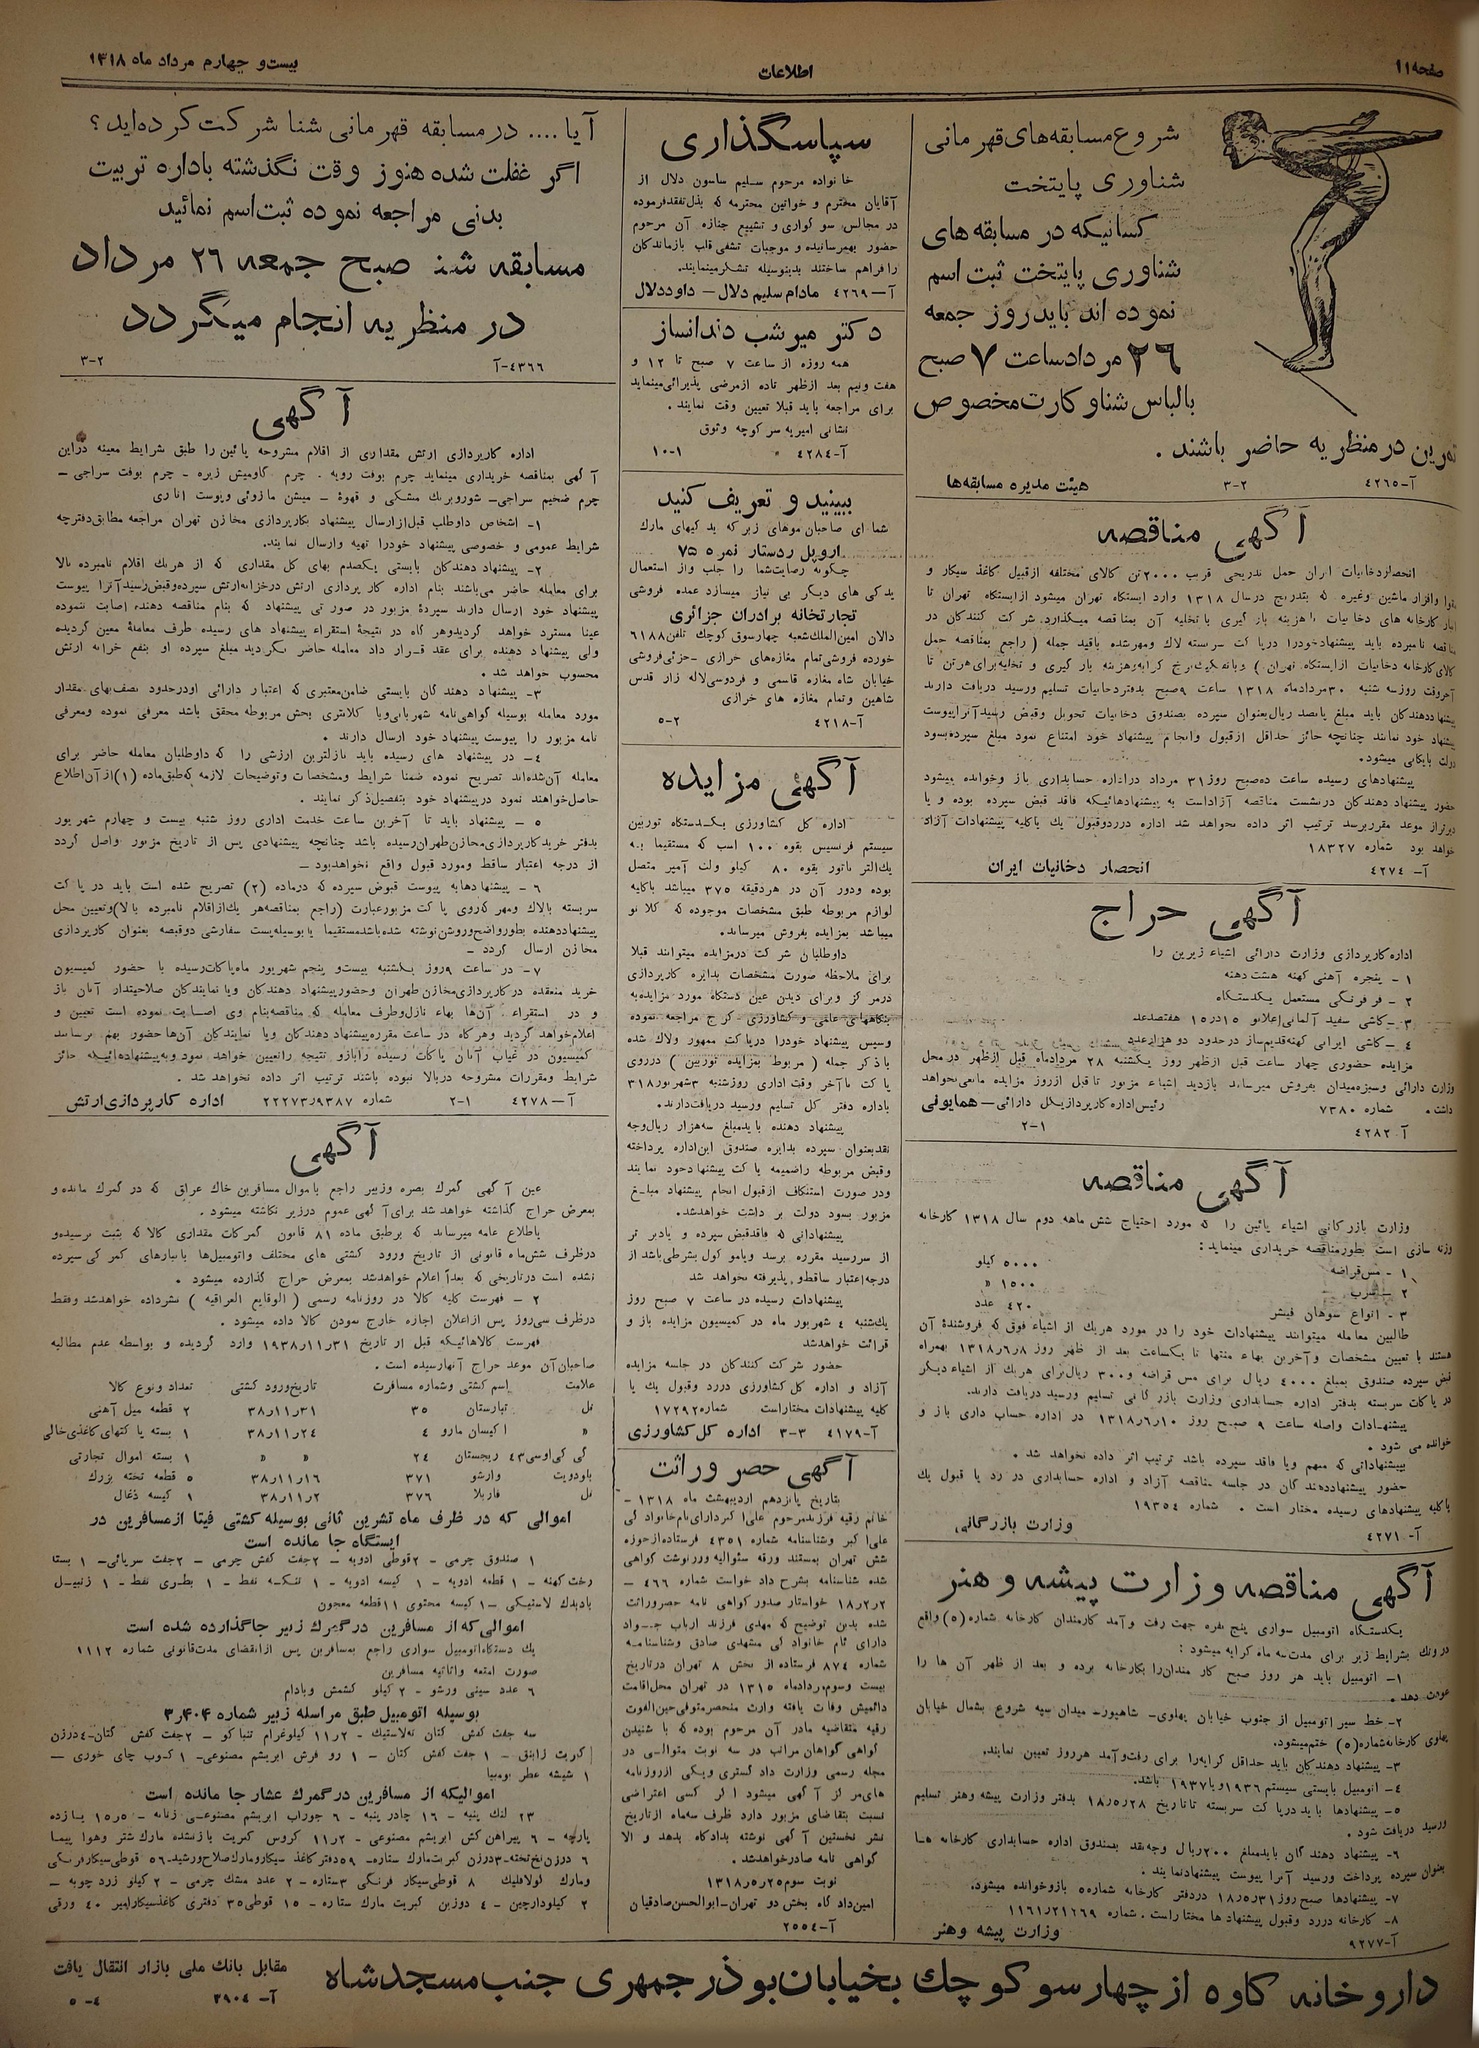 صفحه ۱۱
اطلاعات
بیست و چهارم مرداد ماه ۱۳۱۸
شروع مسابقه‌های قهرمانی
شناوری پایتخت
کسانیکه در مسابقه های
شناوری پایتخت ثبت اسم
نموده اند باید روز جمعه
۲۶ مرداد ساعت ۷ صبح
با لباس شنا و کارت مخصوص
تمرین در منظریه حاضر باشند .
آ-۴۲۶۵ ۲-۳ هیئت مدیره مسابقه‌ها
آگهی مناقصه
انحصار دخانیات ایران حمل تدریجی قریب ۲۰۰۰ تن کالای مختلفه از قبیل کاغذ سیگار و
وافزار ماشین وغیره که بتدریج در سال ۱۳۱۸ وارد ایستگاه تهران میشود از ایستگاه تهران تا
کارخانه های دخانیات با هزینه بار گیری و تخلیه آن بمناقصه میگذارد. شرکت کنندگان در
مناقصه نامبرده باید پیشنهاد خود را در پاکت سربسته لاک ومهر شده باقید جمله ( راجع بمناقصه حمل
کالای کارخانه دخانیات از ایستگاه تهران ) کرایه وهزینه بار گیری و تخلیه برای هر تن تا
آخروقت روز سه شنبه ۳۰ مرداد ماه ۱۳۱۸ ساعت ۹ صبح بدفتر دخانیات تسلیم ورسید دریافت دارند
پیشنهاد دهندگان باید مبلغ پانصد ریال بعنوان سپرده بصندوق دخانیات تحویل وقبض رسید آنرا پیوست
پیشنهاد خود نمایند چنانچه حائز حداقل از قبول وانجام پیشنهاد خود امتناع نمود مبلغ سپرده بسود
دولت بایگانی میشود.
پیشنهادهای رسیده ساعت ده صبح روز ۳۱ مرداد در اداره حسابداری باز وخوانده میشود
حضور پیشنهاد دهندگان در نشست مناقصه آزاد است به پیشنهادهائیکه فاقد قبض سپرده بوده و یا
دیرتر از موعد مقرر برسد ترتیب اثر داده نخواهد شد اداره در رد وقبول یک یا کلیه پیشنهادات آزاد
خواهد بود شماره ۱۸۳۲۷
آ- ۴۲۷۴ انحصار دخانیات ایران
آگهی حراج
اداره کارپردازی وزارت دارائی اشیاء زیرین را
۱ - پنجره آهنی کهنه هشت دهنه
۲ - فر فرنگی مستعمل یکدستگاه
۳ - کاشی سفید آلمانی اعلا نو ۱۵ در ۱۵ هفتصد عدد
۴ - کاشی ایرانی کهنه قدیم ساز در حدود دو هزار عدد
مزایده حضوری چهار ساعت قبل از ظهر روز یکشنبه ۲۸ مرداد ماه قبل از ظهر در محل
وزارت دارائی وسبزه میدان بفروش میرساند بازدید اشیاء مزبور تا قبل از روز مزایده مانعی نخواهد
داشت . شماره ۷۳۸۰ رئیس اداره کارپردازی کل دارائی - همایونی
آ- ۴۲۸۲ ۱-۲
آگهی مناقصه
وزارت بازرگانی اشیاء پائین را که مورد احتیاج شش ماهه دوم سال ۱۳۱۸ کارخانه
وزنه سازی است بطور مناقصه خریداری مینماید :
۱ - مس قراضه ۵۰۰۰ کیلو
۲ - سرب ۱۵۰۰ «
۳ - انواع سوهان فیشر ۴۲۰ عدد
طالبین معامله میتوانند پیشنهادات خود را در مورد هریک از اشیاء فوق که فروشنده آن
هستند با تعیین مشخصات و آخرین بهاء منتها تا یکساعت بعد از ظهر روز ۱۳۱۸/۶/۸ بهمراه
قبض سپرده صندوق بمبلغ ۴۰۰۰ ریال برای مس قراضه و ۳۰۰ ریال برای هریک از اشیاء دیگر
در پاکات سربسته بدفتر اداره حسابداری وزارت بازرگانی تسلیم ورسید دریافت دارند.
پیشنهادات واصله ساعت ۹ صبح روز ۱۳۱۸/۶/۱۰ در اداره حساب داری باز و
خوانده می شود .
بپیشنهاداتی که مبهم ویا فاقد سپرده باشد ترتیب اثر داده نخواهد شد .
حضور پیشنهاد دهندگان در جلسه مناقصه آزاد و اداره حسابداری در رد یا قبول یک
یا کلیه پیشنهادهای رسیده مختار است . شماره ۱۹۳۵۴
آ- ۴۲۷۱ وزارت بازرگانی
آگهی مناقصه وزارت پیشه و هنر
یکدستگاه اتومبیل سواری پنج نفره جهت رفت وآمد کارمندان کارخانه شماره (۵) واقع
در ونک بشرایط زیر برای مدت سه ماه کرایه میشود :
۱- اتومبیل باید هر روز صبح کارمندان را بکارخانه برده و بعد از ظهر آن ها را
عودت دهد .
۲- خط سیر اتومبیل از جنوب خیابان پهلوی- شاهپور- میدان سپه شروع بشمال خیابان
پهلوی کارخانه شماره (۵) ختم میشود.
۳- پیشنهاد دهندگان باید حداقل کرایه را برای رفت وآمد هر روز تعیین نمایند.
۴- اتومبیل بایستی سیستم ۱۹۳۶ ویا ۱۹۳۷ باشد.
۵- پیشنهادها باید در پاکت سربسته تا تاریخ ۱۸/۵/۲۸ بدفتر وزارت پیشه وهنر تسلیم
ورسید دریافت شود .
۶- پیشنهاد دهندگان باید مبلغ ۲۰۰ ریال وجه نقد بصندوق اداره حسابداری کارخانه ها
بعنوان سپرده پرداخت ورسید آنرا پیوست پیشنهاد نمایند .
۷- پیشنهادها صبح روز ۱۸/۵/۳۱ در دفتر کارخانه شماره ۵ باز وخوانده میشود.
۸- کارخانه در رد وقبول پیشنهادها مختار است. شماره ۱۱۶۱/۲۱۲۶۹
آ-۹۲۷۷ وزارت پیشه وهنر
سپاسگذاری
خانواده مرحوم سلیم ساسون دلال از
آقایان محترم و خواتین محترمه که بذل تفقد فرموده
در مجالس سوگواری و تشییع جنازه آن مرحوم
حضور بهمرسانیده و موجبات تشفی قلب بازماندگان
را فراهم ساختند بدینوسیله تشکر مینمایند.
آ-۴۲۶۹ مادام سلیم دلال - داود دلال
دکتر میر شب دندانساز
همه روزه از ساعت ۷ صبح تا ۱۲ و
هفت ونیم بعد از ظهر تا ده از مرضی پذیرائی مینماید
برای مراجعه باید قبلا تعیین وقت نمایند.
نشانی امیریه سر کوچه وثوق
آ-۴۲۸۴ ۱-۱۰
ببینید و تعریف کنید
شما ای صاحبان موهای زبر که یدکیهای مارک
اروپل ردستار نمره ۷۵
چگونه رضایت شما را جلب واز استعمال
یدکی های دیگر بی نیاز میسازد عمده فروشی
تجارتخانه برادران جزائری
دالان امین الملک شعبه چهارسوق کوچک تلفن ۶۱۸۸
خورده فروشی تمام مغازه‌های خرازی - جزئی فروشی
خیابان شاه مغازه قاسمی و فردوسی لاله زار قدس
شاهین وتمام مغازه های خرازی
آ-۴۲۱۸ ۲-۵
آگهی مزایده
اداره کل کشاورزی یکدستگاه توربین
سیستم فرنسیس بقوه ۱۰۰ اسب که مستقیما به
یک الترناتور بقوه ۸۰ کیلو ولت آمپر متصل
بوده ودور آن در هر دقیقه ۳۷۵ میباشد باکلیه
لوازم مربوطه طبق مشخصات موجوده که کلا نو
میباشد بمزایده بفروش میرساند.
داوطلبان شرکت در مزایده میتوانند قبلا
برای ملاحظه صورت مشخصات بدایره کارپردازی
در مرکز وبرای دیدن عین دستگاه مورد مزایده به
بنگاههای علمی و کشاورزی کرج مراجعه نموده
وسپس پیشنهاد خود را در پاکت ممهور ولاک شده
با ذکر جمله ( مربوط بمزایده توربین ) در روی
پاکت تا آخر وقت اداری روز شنبه ۳ شهریور ۳۱۸
باداره دفتر کل تسلیم ورسید دریافت دارند.
پیشنهاد دهنده باید مبلغ سه هزار ریال وجه
نقد بعنوان سپرده بدایره صندوق این اداره پرداخته
وقبض مربوطه را ضمیمه پاکت پیشنهاد خود نمایند
ودر صورت استنکاف از قبول انجام پیشنهاد مبلغ
مزبور بسود دولت بر داشت خواهد شد.
پیشنهاداتی که فاقد قبض سپرده و یا دیر تر
از سر رسید مقرره برسد ویا موکول بشرطی باشد از
درجه اعتبار ساقط و پذیرفته نخواهد شد
پیشنهادات رسیده در ساعت ۷ صبح روز
یکشنبه ۴ شهریور ماه در کمیسیون مزایده باز و
قرائت خواهد شد
حضور شرکت کنندگان در جلسه مزایده
آزاد و اداره کل کشاورزی در رد وقبول یک یا
کلیه پیشنهادات مختار است شماره ۱۷۲۹۲
آ-۴۱۷۹ ۳-۳ اداره کل کشاورزی
آگهی حصر وراثت
بتاریخ پانزدهم اردیبهشت ماه ۱۳۱۸ -
خانم رقیه فرزند مرحوم علی اکبر دارای نام خانوادگی
علی اکبر وشناسنامه شماره ۴۳۵۱ فرستاده از حوزه
شش تهران بمستند ورقه سئوالیه ورونوشت گواهی
شده شناسنامه بشرح داد خواست شماره ۴۶۶ -
۱۸/۲/۲ خواستار صدور گواهی نامه حصر وراثت
شده بدین توضیح که مهدی فرزند ارباب جواد
دارای نام خانوادگی مشهدی صادق وشناسنامه
شماره ۸۷۴ فرستاده از بخش ۸ تهران در تاریخ
بیست وسوم مرداد ماه ۱۳۱۵ در تهران محل اقامت
دائمیش وفات یافته وارث منحصر متوفی حین الفوت
رقیه متقاضیه مادر آن مرحوم بوده که با شنیدن
گواهی گواهان مراتب در سه نوبت متوالی در
مجله رسمی وزارت داد گستری ویکی از روزنامه
های مرکز آگهی میشود اگر کسی اعتراضی
نسبت بتقاضای مزبور دارد ظرف سه ماه از تاریخ
نشر نخستین آگهی نوشته بدادگاه بدهد و الا
گواهی نامه صادر خواهد شد.
نوبت سوم ۱۳۱۸/۵/۲۵
امین داد گاه بخش دو تهران - ابوالحسن صادقیان
آ-۲۵۵۴
آیا .... در مسابقه قهرمانی شنا شرکت کرده‌اید ؟
اگر غفلت شده هنوز وقت نگذشته باداره تربیت
بدنی مراجعه نموده ثبت اسم نمائید
مسابقه شنا صبح جمعه ۲۶ مرداد
در منظریه انجام میگردد
۴۳۶۶-آ ۲-۳
آگهی
اداره کارپردازی ارتش مقداری از اقلام مشروحه پائین را طبق شرایط معینه در این
آگهی بمناقصه خریداری مینماید چرم بوفت رویه . چرم گاومیش زیره - چرم بوفت سراجی -
چرم ضخیم سراجی - شوروبرک مشکی و قهوه - میشن مازوئی وپوست اناری
۱- اشخاص داوطلب قبل از ارسال پیشنهاد بکارپردازی مخازن تهران مراجعه مطابق دفترچه
شرایط عمومی و خصوصی پیشنهاد خود را تهیه وارسال نمایند.
۲- پیشنهاد دهندگان بایستی یکصدم بهای کل مقداری که از هریک اقلام نامبرده بالا
برای معامله حاضر می‌باشند بنام اداره کارپردازی ارتش در خزانه ارتش سپرده وقبض رسید آنرا پیوست
پیشنهاد خود ارسال دارند سپرده مزبور در صورتی پیشنهاد که بنام مناقصه دهنده اصابت ننموده
عینا مسترد خواهد گردید وهر گاه در نتیجه استقراء پیشنهاد های رسیده طرف معامله معین گردیده
ولی پیشنهاد دهنده برای عقد قرار داد معامله حاضر نگردید مبلغ سپرده او بنفع خزانه ارتش
محسوب خواهد شد .
۳- پیشنهاد دهندگان بایستی ضامن معتبری که اعتبار دارائی او در حدود نصف بهای مقدار
مورد معامله بوسیله گواهی نامه شهربانی ویا کلانتری بخش مربوطه محقق باشد معرفی نموده ومعرفی
نامه مزبور را پیوست پیشنهاد خود ارسال دارند .
۴- در پیشنهاد های رسیده باید نازلترین ارزشی را که داوطلبان معامله حاضر برای
معامله آن شده‌اند تصریح نموده ضمنا شرایط ومشخصات وتوضیحات لازمه که طبق ماده (۱) از آن اطلاع
حاصل خواهند نمود در پیشنهاد خود بتفصیل ذکر نمایند .
۵ - پیشنهاد باید تا آخرین ساعت خدمت اداری روز شنبه بیست و چهارم شهریور
بدفتر خرید کارپردازی مخازن طهران رسیده باشد چنانچه پیشنهادی پس از تاریخ مزبور واصل گردد
از درجه اعتبار ساقط ومورد قبول واقع نخواهد بود -
۶ - پیشنهادها به پیوست قبوض سپرده که در ماده (۲) تصریح شده است باید در پاکت
سربسته بالاک ومهر که روی پاکت مزبور عبارت (راجع بمناقصه هریک از اقلام نامبرده بالا) وتعیین محل
پیشنهاد دهنده بطور واضح وروشن نوشته شده باشد مستقیما یا بوسیله پست سفارشی دو قبضه بعنوان کارپردازی
مخازن ارسال گردد -
۷- در ساعت ۹ روز یکشنبه بیست و پنجم شهریور ماه پاکات رسیده با حضور کمیسیون
خرید منعقده در کارپردازی مخازن طهران وحضور پیشنهاد دهندگان ویا نمایندگان صلاحیتدار آنان باز
و در استقراء آن‌ها بهاء نازل وطرف معامله که مناقصه بنام وی اصابت نموده است تعیین و
اعلام خواهد گردید وهرگاه در ساعت مقرره پیشنهاد دهندگان ویا نمایندگان آن‌ها حضور بهم نرسانند
کمیسیون در غیاب آنان پاکات رسیده را باز و نتیجه را تعیین خواهد نمود وبه پیشنهادهائیکه حائز
شرایط ومقررات مشروحه در بالا نبوده باشند ترتیب اثر داده نخواهد شد .
آ-۴۲۷۸ ۱-۲ شماره ۲۲۲۷۳/۹۳۸۷ اداره کارپردازی ارتش
آگهی
عین آگهی گمرک بصره وزیبر راجع باموال مسافرین خاک عراق که در گمرک مانده و
بمعرض حراج گذاشته خواهد شد برای آگهی عموم در زیر نگاشته میشود .
باطلاع عامه میرساند که بر طبق ماده ۸۱ قانون گمرکات مقداری کالا که بثبت نرسیده و
در ظرف شش ماه قانونی از تاریخ ورود کشتی های مختلف واتومبیل‌ها بانبارهای گمرکی سپرده
نشده است در تاریخی که بعداً اعلام خواهد شد بمعرض حراج گذارده میشود .
۲ - فهرست کلیه کالا در روزنامه رسمی ( الوقایع العراقیه ) نشر داده خواهد شد وفقط
در ظرف سی روز پس از اعلان اجازه خارج نمودن کالا داده میشود .
فهرست کالاهائیکه قبل از تاریخ ۱۹۳۸/۱۱/۳۱ وارد گردیده و بواسطه عدم مطالبه
صاحبان آن موعد حراج آنها رسیده است .
علامت اسم کشتی وشماره مسافرت تاریخ ورود کشتی تعداد ونوع کالا
نل تبارستان ۳۵ ۳۸/۱۱/۳۱ ۲ قطعه میل آهنی
« اکیسان مارو ۴ ۳۸/۱۱/۲۴ ۱ بسته پاکتهای کاغذی خالی
گی کی اوسی ۴۳ ریجستان ۲۴ « « ۱ بسته اموال تجارتی
باودویت وارشو ۳۷۱ ۳۸/۱۱/۱۶ ۵ قطعه تخته بزرگ
نل فاربلا ۳۷۶ ۳۸/۱۱/۲ ۱ کیسه ذغال
اموالی که در ظرف ماه تشرین ثانی بوسیله کشتی فیتا از مسافرین در
ایستگاه جا مانده است
۱ صندوق چرمی - ۲ قوطی ادویه - ۲ جفت کفش چرمی - ۲ جفت سرپائی - ۱ بستا
رخت کهنه - ۱ قطعه ادویه - ۱ کیسه ادویه - ۱ تنکه نفط - ۱ بطری نفط - ۱ زنبیل
بادبدک لاستیکی - ۱ کیسه محتوی ۱۱ قطعه معجون
اموالی که از مسافرین در گمرک زبیر جا گذارده شده است
یک دستگاه اتومبیل سواری راجع بمسافرین پس از انقضای مدت قانونی شماره ۱۱۱۲
صورت امتعه واثاثیه مسافرین
۶ عدد سینی ورشو - ۲ کیلو کشمش وبادام
بوسیله اتومبیل طبق مراسله زبیر شماره ۳/۴۰۴
سه جفت کفش کتان ته لاستیک - ۱۱/۲ کیلوغرام تنباکو - ۲ جفت کفش کتان - ۴ درزن
کبریت ژاپنی - ۱ جفت کفش کتان - ۱ رو فرش ابریشم مصنوعی - ۱ کوب چای خوری -
۱ شیشه عطر بومبیا
اموالیکه از مسافرین در گمرک عشار جا مانده است
۲۳ لنگ پنبه - ۱۶ چادر پنبه - ۶ جوراب ابریشم مصنوعی زنانه - ۱۵/۵ یازده
پارچه - ۶ پیراهن کش ابریشم مصنوعی - ۱۱/۲ کروس کبریت بازنشده مارک شتر وهوا پیما
۶ درزن نخ تخته - ۳ درزن کبریت مارک ستاره - ۵۹ دفتر کاغذ سیگار ومارک صلاح ورشید - ۵۶ قوطی سیگار فرنگی
ومارک لوفلیک ۸ قوطی سیگار فرنگی ۳ ستاره - ۲ عدد مشک چرمی - ۲ کیلو زرد چوبه -
۲ کیلو دارچین - ۴ دوزین کبریت مارک ستاره - ۱۵ قوطی ۳۵ دفتری کاغذ سیگار امیر ۴۰ ورقی
داروخانه کاوه از چهارسو کوچک بخیابان بوذرجمهری جنب مسجد شاه
مقابل بانک ملی بازار انتقال یافت
آ- ۳۹۰۴ ۴-۵